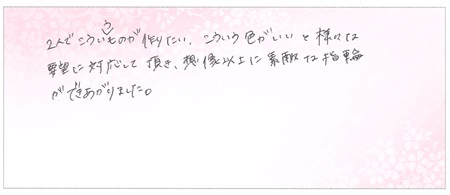 2人でこういうものが作りたい、こういう色がいいと様々な
要望に対応して頂き、想像以上に素敵な指輪
ができあがりました。